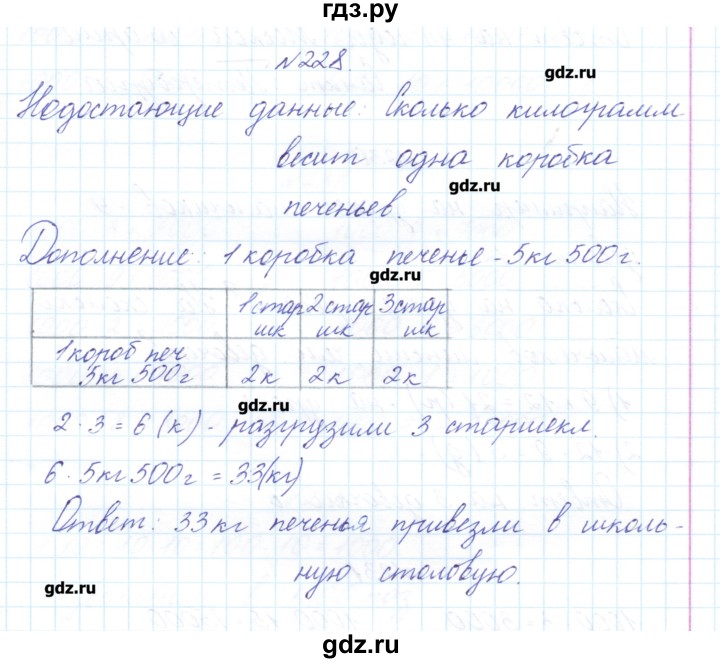 гдз.ру
№228.
gdz.ru
Недостающие данные: Сколько килограмм
весит одна коробка
gdz.ru
печеньев.
Дополнение: 1 коробка печенье - 5кг 500г.
gdz.ru
1 стар 2 стар 3 стар
шк шк шк
1 короб печ
5кг 500г 2к 2к 2к
gdz.ru
2 · 3 = 6 (к) - разгрузили 3 старшекл.
6 · 5кг 500г = 33(кг)
gdz.ru
Ответ: 33кг печенья привезли в школь-
ную столовую.
gdz.ru
gdz.ru
gdz.ru